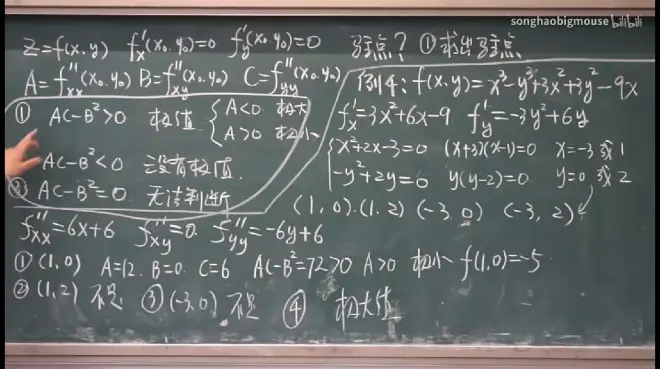 songhaobigmouse bilibili
Z=f(x,y) f'x(x₀,y₀)=0 f'y(x₀,y₀)=0 驻点? ①求出驻点
A=f''xx(x₀,y₀) B=f''xy(x₀,y₀) C=f''yy(x₀,y₀)
① AC-B²>0 极值 { A<0 极大
A>0 极小
AC-B²<0 没有极值.
③ AC-B²=0. 无法判断
例4: f(x,y)=x³-y³+3x²+3y²-9x
f'x=3x²+6x-9 f'y=-3y²+6y
{ x²+2x-3=0 (x+3)(x-1)=0 x=-3或1
-y²+2y=0 y(y-2)=0 y=0或2
(1,0).(1,2) (-3,0) (-3,2)
f''xx=6x+6 f''xy=0. f''yy=-6y+6
①(1,0) A=12. B=0. C=6 AC-B²=72>0 A>0 极小 f(1,0)=-5
②(1,2) 不是 ③(-3,0) 不是 ④ 极大值